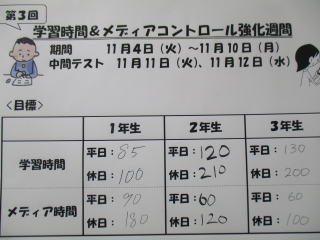 第3回
学習時間&メディアコントロール強化週間
期間 11月4日(火)～11月10日(月)
中間テスト 11月11日(火)、11月12日(水)
<目標>
1年生 2年生 3年生
学習時間 平日:85 平日:120 平日:130
休日:100 休日:210 休日:200
メディア時間 平日:90 平日:60 平日:60
休日:180 休日:120 休日:100